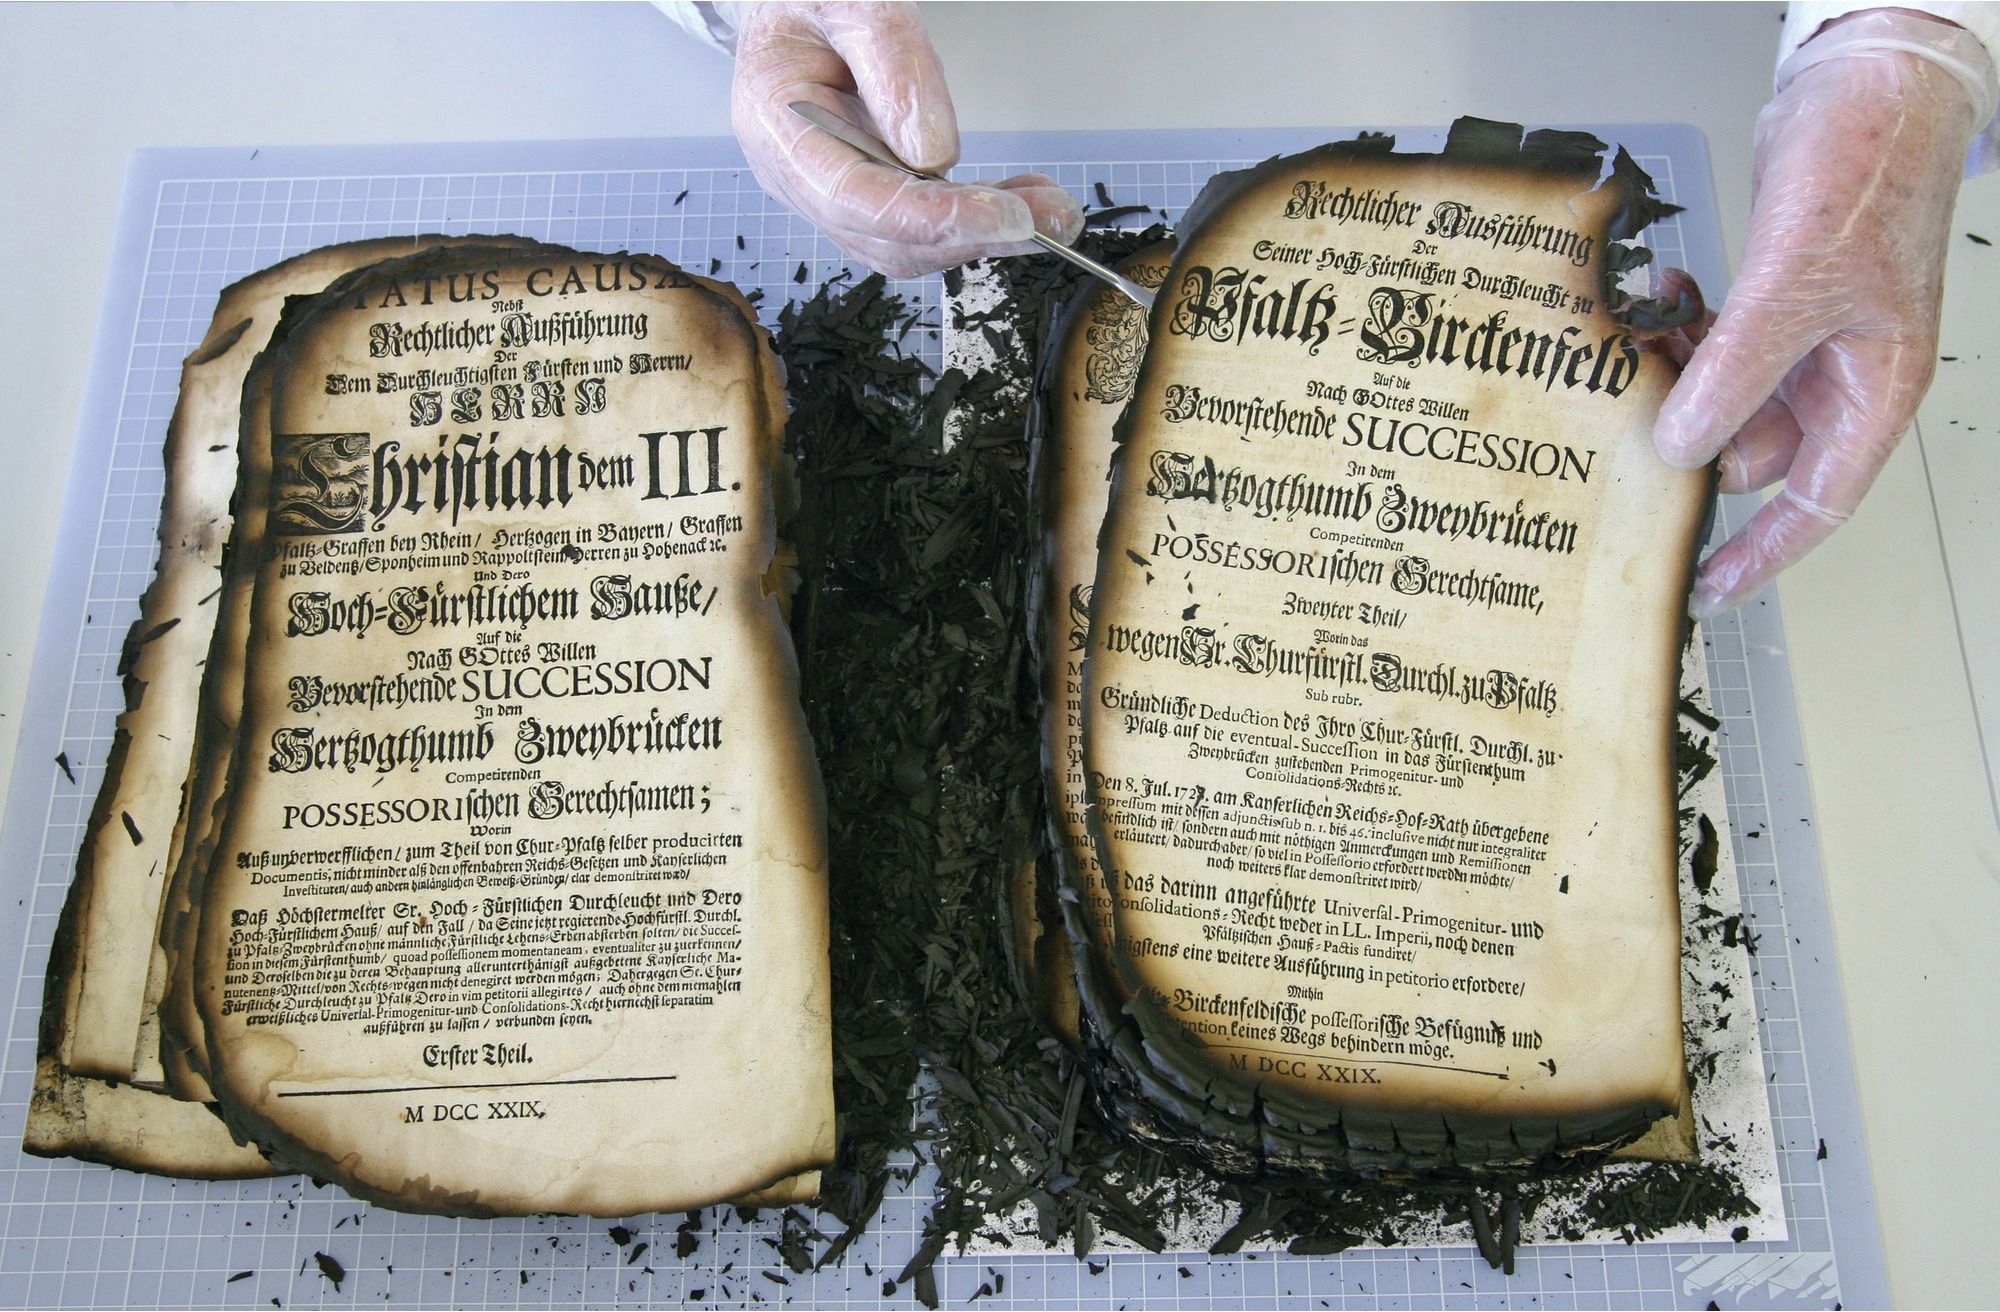 STATUS CAUSÆ
Nebst
Rechtlicher Außführung
Der
Dem Durchleuchtigsten Fürsten und Herrn/
HERRN
Christian dem III.
Pfaltz-Graffen bey Rhein/ Hertzogen in Bayern/ Graffen
zu Veldentz/ Sponheim und Rappoltstein/ Herren zu Hohenack ꝛc.
Und Dero
Hoch-Fürstlichem Hauße/
Auf die
Nach GOttes Willen
Bevorstehende SUCCESSION
In dem
Hertzogthumb Zweybrücken
Competirenden
POSSESSORIschen Gerechtsamen;
Worin
Auß unverwerfflichen/ zum Theil von Chur-Pfaltz selber producirten
Documentis, nicht minder alß den offenbahren Reichs-Gesetzen und Kayserlichen
Investituren/ auch andern hinlänglichen Beweiß-Gründen/ clar demonstriret wird/
Daß Höchstermelter Sr. Hoch-Fürstlichen Durchleucht und Dero
Hoch-Fürstlichem Hauß/ auf den Fall/ da Seine jetzt regierende Hochfürstl. Durchl.
zu Pfaltz-Zweybrücken ohne männliche Fürstliche Lehens-Erben absterben solten/ die Succes-
sion in diesem Fürstenthumb/ quoad possessionem momentaneam, eventualiter zu zuerkennen/
und Deroselben die zu deren Behauptung allerunterthänigst außgebetene Kayserliche Ma-
nutenentz-Mittel/ von Rechts-wegen nicht denegiret werden mögen; Dahergegen Se. Chur-
Fürstliche Durchleucht zu Pfaltz Dero in vim petitorii allegirtes/ auch ohne dem niemahlen
erweißliches Universal-Primogenitur-und Consolidations-Recht hiernechst separatim
außführen zu lassen/ verbunden seyen.
Erster Theil.
M DCC XXIX.
Rechtlicher Ausführung
Der
Seiner Hoch-Fürstlichen Durchleucht zu
Pfaltz-Birckenfeld
Auf die
Nach GOttes Willen
Bevorstehende SUCCESSION
In dem
Hertzogthumb Zweybrücken
Competirenden
POSSESSORIschen Gerechtsame,
Zweyter Theil/
Worin das
wegen Sr. Churfürstl. Durchl. zu Pfaltz
Sub rubr.
Gründliche Deduction des Ihro Chur-Fürstl. Durchl. zu
Pfaltz auf die eventual-Succession in das Fürstenthum
Zweybrücken zustehenden Primogenitur-und
Consolidations-Rechts ꝛc.
Den 8. Jul. am Kayserlichen Reichs-Hof-Rath übergebene
impressum mit dessen adjunctis sub n. 1. bis 46. inclusive nicht nur integraliter
befindlich ist/ sondern auch mit nöthigen Anmerckungen und Remissionen
erläutert/ dadurch aber/ so viel in Possessorio erfordert werden möchte/
noch weiters klar demonstriret wird/
das darinn angeführte Universal-Primogenitur-und
Consolidations-Recht weder in LL. Imperii, noch denen
Pfältzischen Hauß-Pactis fundiret/
eine weitere Ausführung in petitorio erfordere/
Mithin
Birckenfeldische possessorische Befügnuß und
keines Wegs behindern möge.
M DCC XXIX.